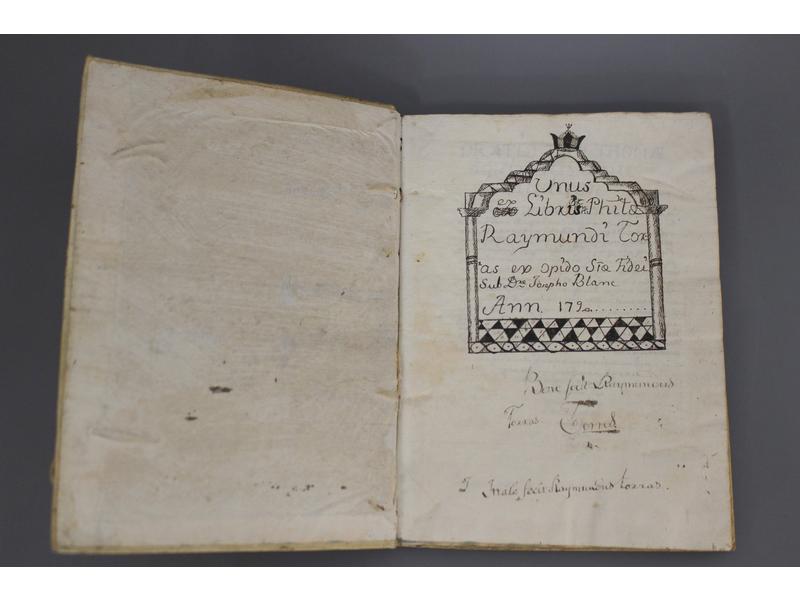 Unus
ex Libris Phil
Raymundi Tor
as ex Opido Stæ Fidei
Sub Dre Josepho Blanc
Ann. 179
Bene fecit Raymundus
Torras
Male fecit Raymundus Torras.